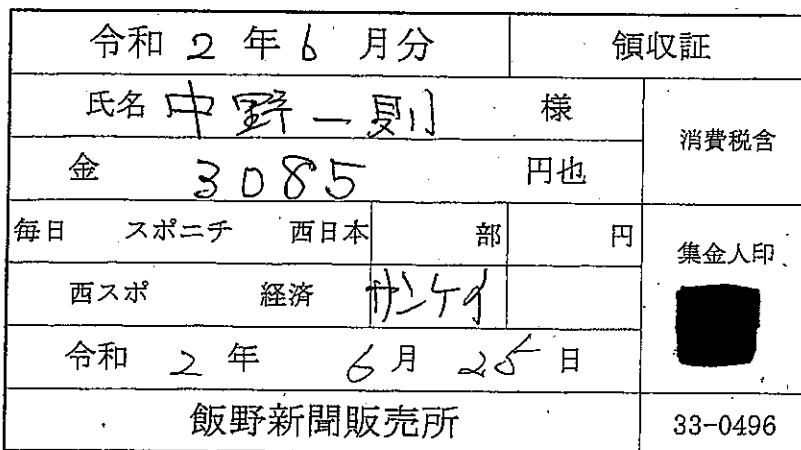 令和 2 年 6 月分 領収証
氏名 中野一則 様
消費税含
金 3085 円也
毎日 スポニチ 西日本 部 円
集金人印
西スポ 経済 サンケイ
令和 2 年 6 月 25 日
飯野新聞販売所 33-0496